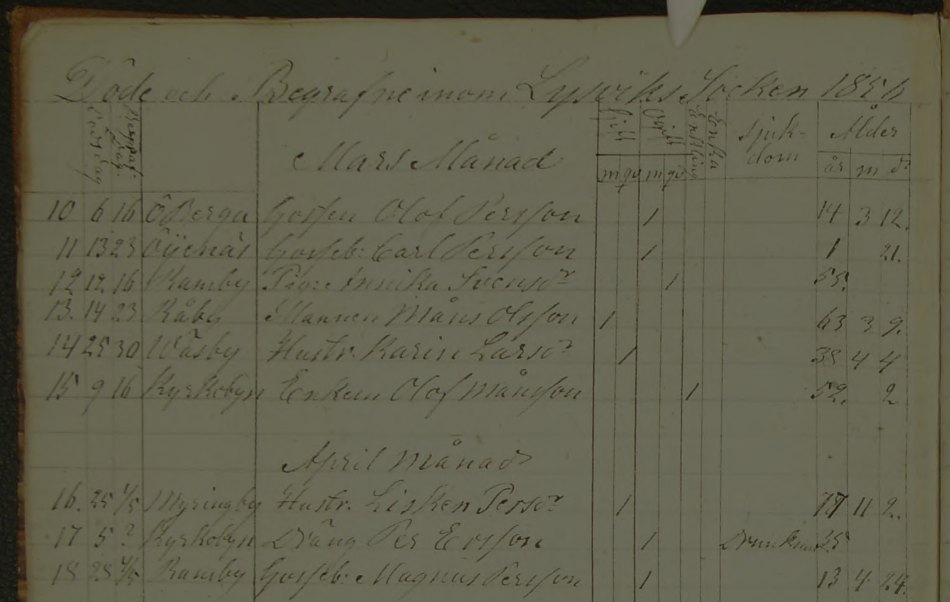 Döde och Begrafne inom Lysviks Socken 1856
Gift Ogift Enka Enkling Sjuk-dom Ålder
Mars Månad
m qv m qv år m d
10 6 16 Ö Berga Gossen Olof Persson 1 14 3 12
11 13 23 Öjenäs Gosseb: Carl Persson 1 1 21.
12 12 16 Ramby Pig: Annika Svensdr 1 55.
13. 14 23 Råby Mannen Måns Olsson 1 63 3 9.
14 25 30 Wäsby Hustr. Karin Larsdr 1 38 4 4
15 9 16 Kyrkobyn Enkem Olof Månsson 1 52. 2
April Månad
16. 25 1/5 Myringby Hustr. Lisken Persdr 1 77 11 2.
17 5 ? Kyrkobyn Dräng Per Ersson 1 25
18 28 4/5 Ramby Gosseb: Magnus Persson 1 13 4 24.